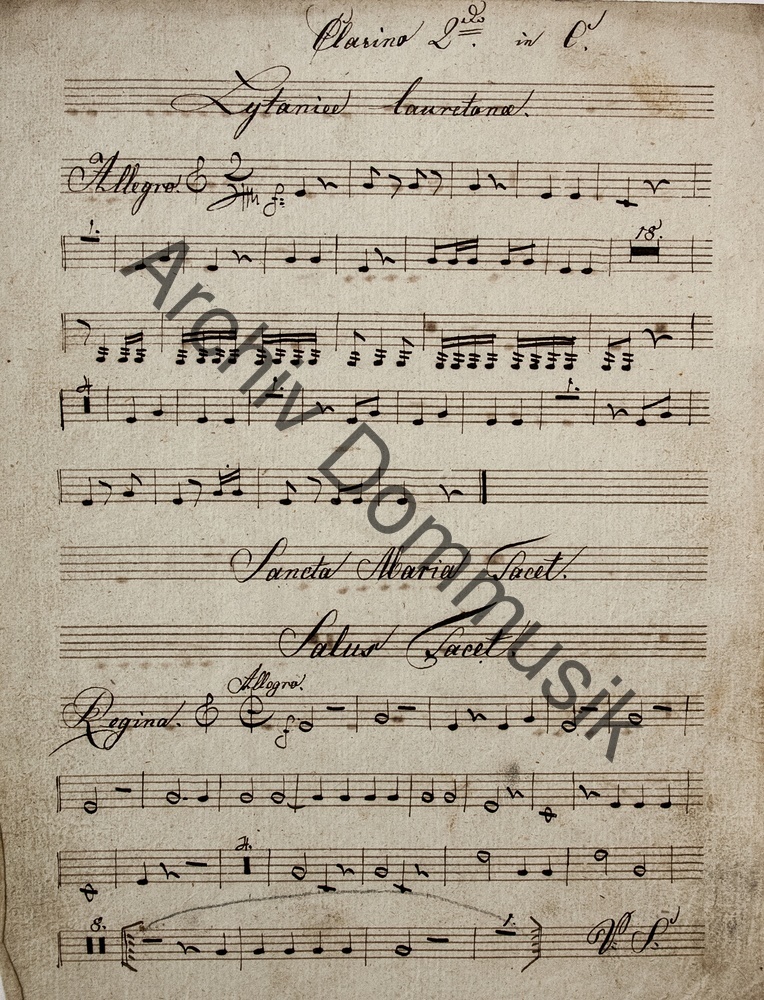 Clarino 2do. in C.
Lytaniae lauretanae.
Allegro. 2/4 f:
1. 18.
4 1. 1.
Sancta Maria Tacet.
Salus Tacet.
Allegro.
Regina. f
4.
8. 1. V. S.
Archiv Dommusik